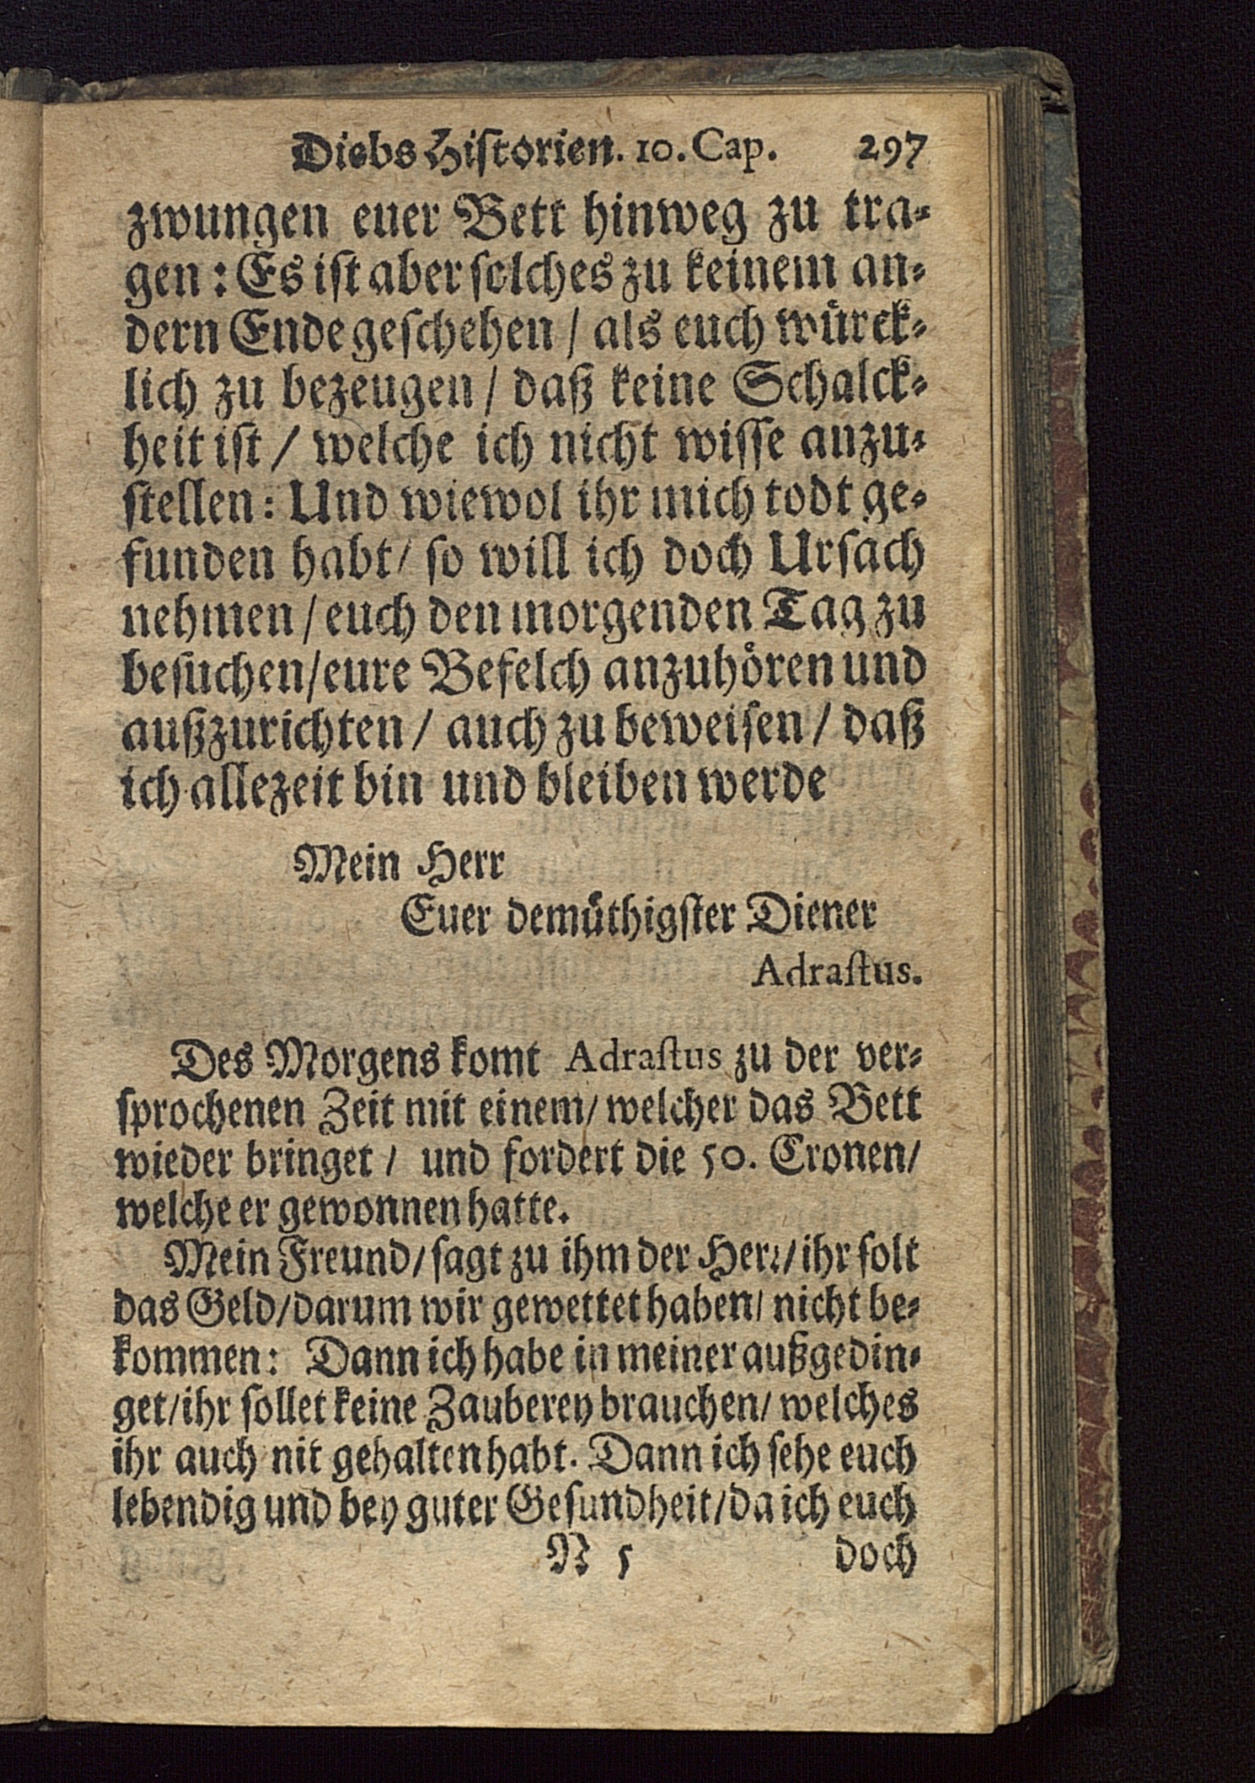 Diebs Historien. 10. Cap. 297
zwungen euer Bett hinweg zu tra-
gen: Es ist aber solches zu keinem an-
dern Ende geschehen / als euch würck-
lich zu bezeugen / daß keine Schalck-
heit ist / welche ich nicht wisse anzu-
stellen: Und wiewol ihr mich todt ge-
funden habt / so will ich doch Ursach
nehmen / euch den morgenden Tag zu
besuchen / eure Befelch anzuhören und
außzurichten / auch zu beweisen / daß
ich allezeit bin und bleiben werde
Mein Herr
Euer demüthigster Diener
Adrastus.
Des Morgens komt Adrastus zu der ver-
sprochenen Zeit mit einem / welcher das Bett
wieder bringet / und fordert die 50. Cronen /
welche er gewonnen hatte.
Mein Freund / sagt zu ihm der Herr / ihr solt
das Geld / darum wir gewettet haben / nicht be-
kommen: Dann ich habe in meiner außgedin-
get / ihr sollet keine Zauberey brauchen / welches
ihr auch nit gehalten habt. Dann ich sehe euch
lebendig und bey guter Gesundheit / da ich euch
N 5 doch